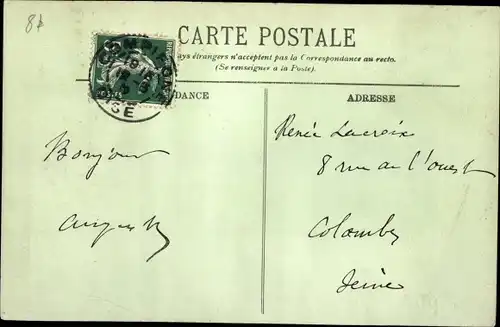 8+
CARTE POSTALE
pays étrangers n'acceptent pas la Correspondance au recto.
(Se renseigner à la Poste).
DANCE
ADRESSE
Bonjour
Renée Lacroix
8 rue de l'ouest
Colombes
Seine
OISE